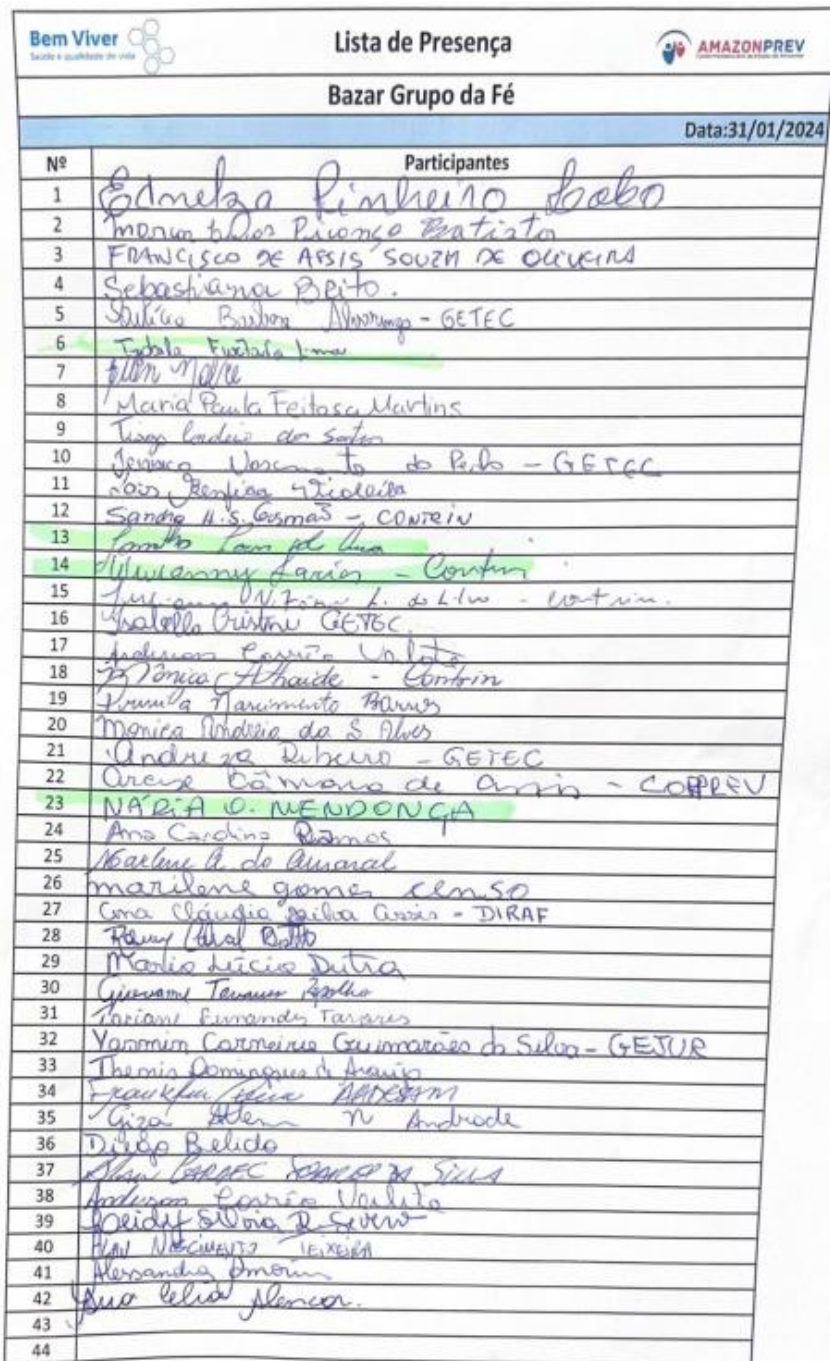 Bem Viver
Saúde e qualidade de vida
Lista de Presença
AMAZONPREV
Bazar Grupo da Fé
Data:31/01/2024
Nº Participantes
1 Ednelza Pinheiro Lobo
2 Picanço Batista
3 FRANCISCO DE ASSIS SOUZA DE OLIVEIRA
4 Sebastiana Brito.
5 Barbosa Alvarenga - GETEC
6 Furtado Lima
7
8 Maria Paula Feitosa Martins
9 Tiago Cordeiro dos Santos
10 Jessica Nascimento do - GETEC
11
12 Sandra H.S. Gusmão - CONTRIN
13
14 Farias - Contrin
15 L. da Silva - contrin.
16 Isabella Cristine GETEC
17 Anderson Corrêa
18 Mônica Athaide - Contrin
19 Nascimento Barros
20 Monica Andreia da S. Alves
21 Andreza Ribeiro - GETEC
22 Câmara de Assis - COPREV
23 NÁDIA O. MENDONÇA
24 Ana Carolina Ramos
25 Marlene A. do Amaral
26 marilene gomes censo
27 Ana Cláudia Silva Assis - DIRAF
28
29 Maria Lúcia Dutra
30 Giovanni Tavares
31 Taciane Fernandes Tavares
32 Yasmin Carneiro Guimarães da Silva - GEJUR
33 Themis Domingues de Araújo
34 AADESAM
35 Giza N Andrade
36 Diego Belido
37 SOARES DA SILVA
38 Anderson Corrêa
39 Leidy Silvia R. Severo
40 ALAN NASCIMENTO TEIXEIRA
41 Alessandra Amorim
42 Ana Célia Alencar.
43
44